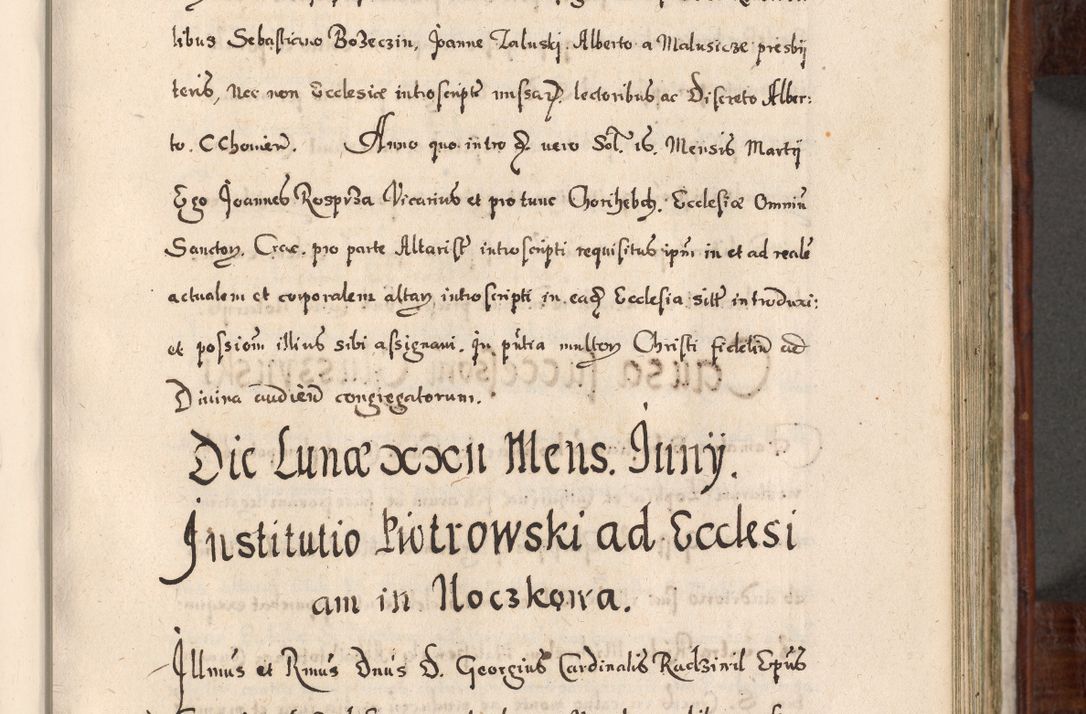 libus Sebastiano Bożeczin, Joanne Zaluski. Alberto a Malusicze presbÿ
teris, Nec non Ecclesiæ introscripte missar. lectoribus ac Discreto Alber:
to. CChomier. Anno quo intro vero Sol. is. Mensis Martÿ
Ego Joannes Rosprza Vicarius et pro tunc Ecclesiæ Omniū
Sanctor. Crac. pro parte Altarist introscripti requisitus ipm in et ad realē
actualem et corporalem altar introscripti in ead Ecclesia siti introduxi:
et possiom illius sibi assignavi. In pñtia multor Christi fideliū ad
Divina audiēd congregatorum.
Die Lunæ xxii Mens. Junÿ.
Institutio Piotrowski ad Ecclesi
am in Noczkowa.
Illmus et Rmus Dnus D. Georgius Cardinalis Radziwil Epus